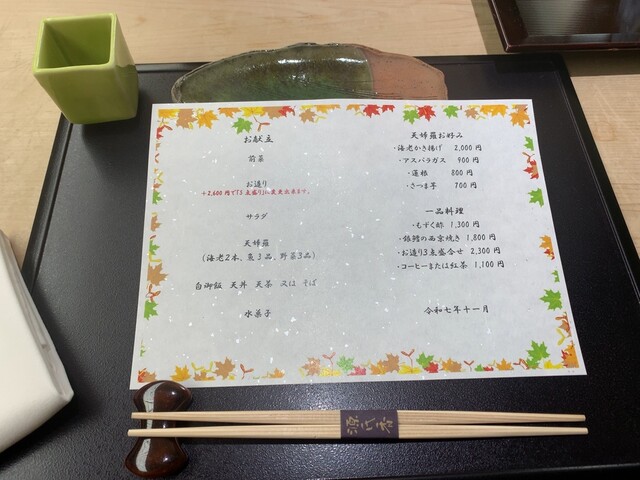 お献立
前菜
お造り
+2,600円で「5点盛り」に変更出来ます。
サラダ
天婦羅
(海老2本、魚3品、野菜3品)
白御飯 天丼 天茶 又は そば
水菓子
天婦羅お好み
・海老かき揚げ 2,000円
・アスパラガス 900円
・蓮根 800円
・さつま芋 700円
一品料理
・もずく酢 1,300円
・銀鱈の西京焼き 1,800円
・お造り3点盛合せ 2,300円
・コーヒーまたは紅茶 1,100円
令和七年十一月